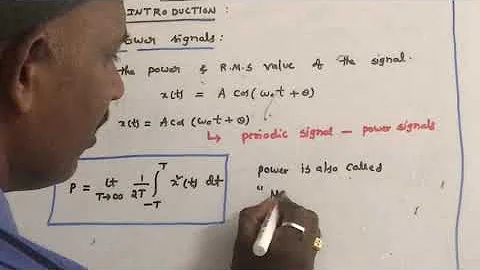 INTRODUCTION:
Power signals:
the power & R.M.S value of the signal.
x(t) = A cos(ω₀t + θ)
x(t) = A cos (ω₀t + θ)
↳ periodic signal - power signals
P = lt T→∞ 1/2T ∫_{-T}^{T} x²(t) dt
power is also called
" M